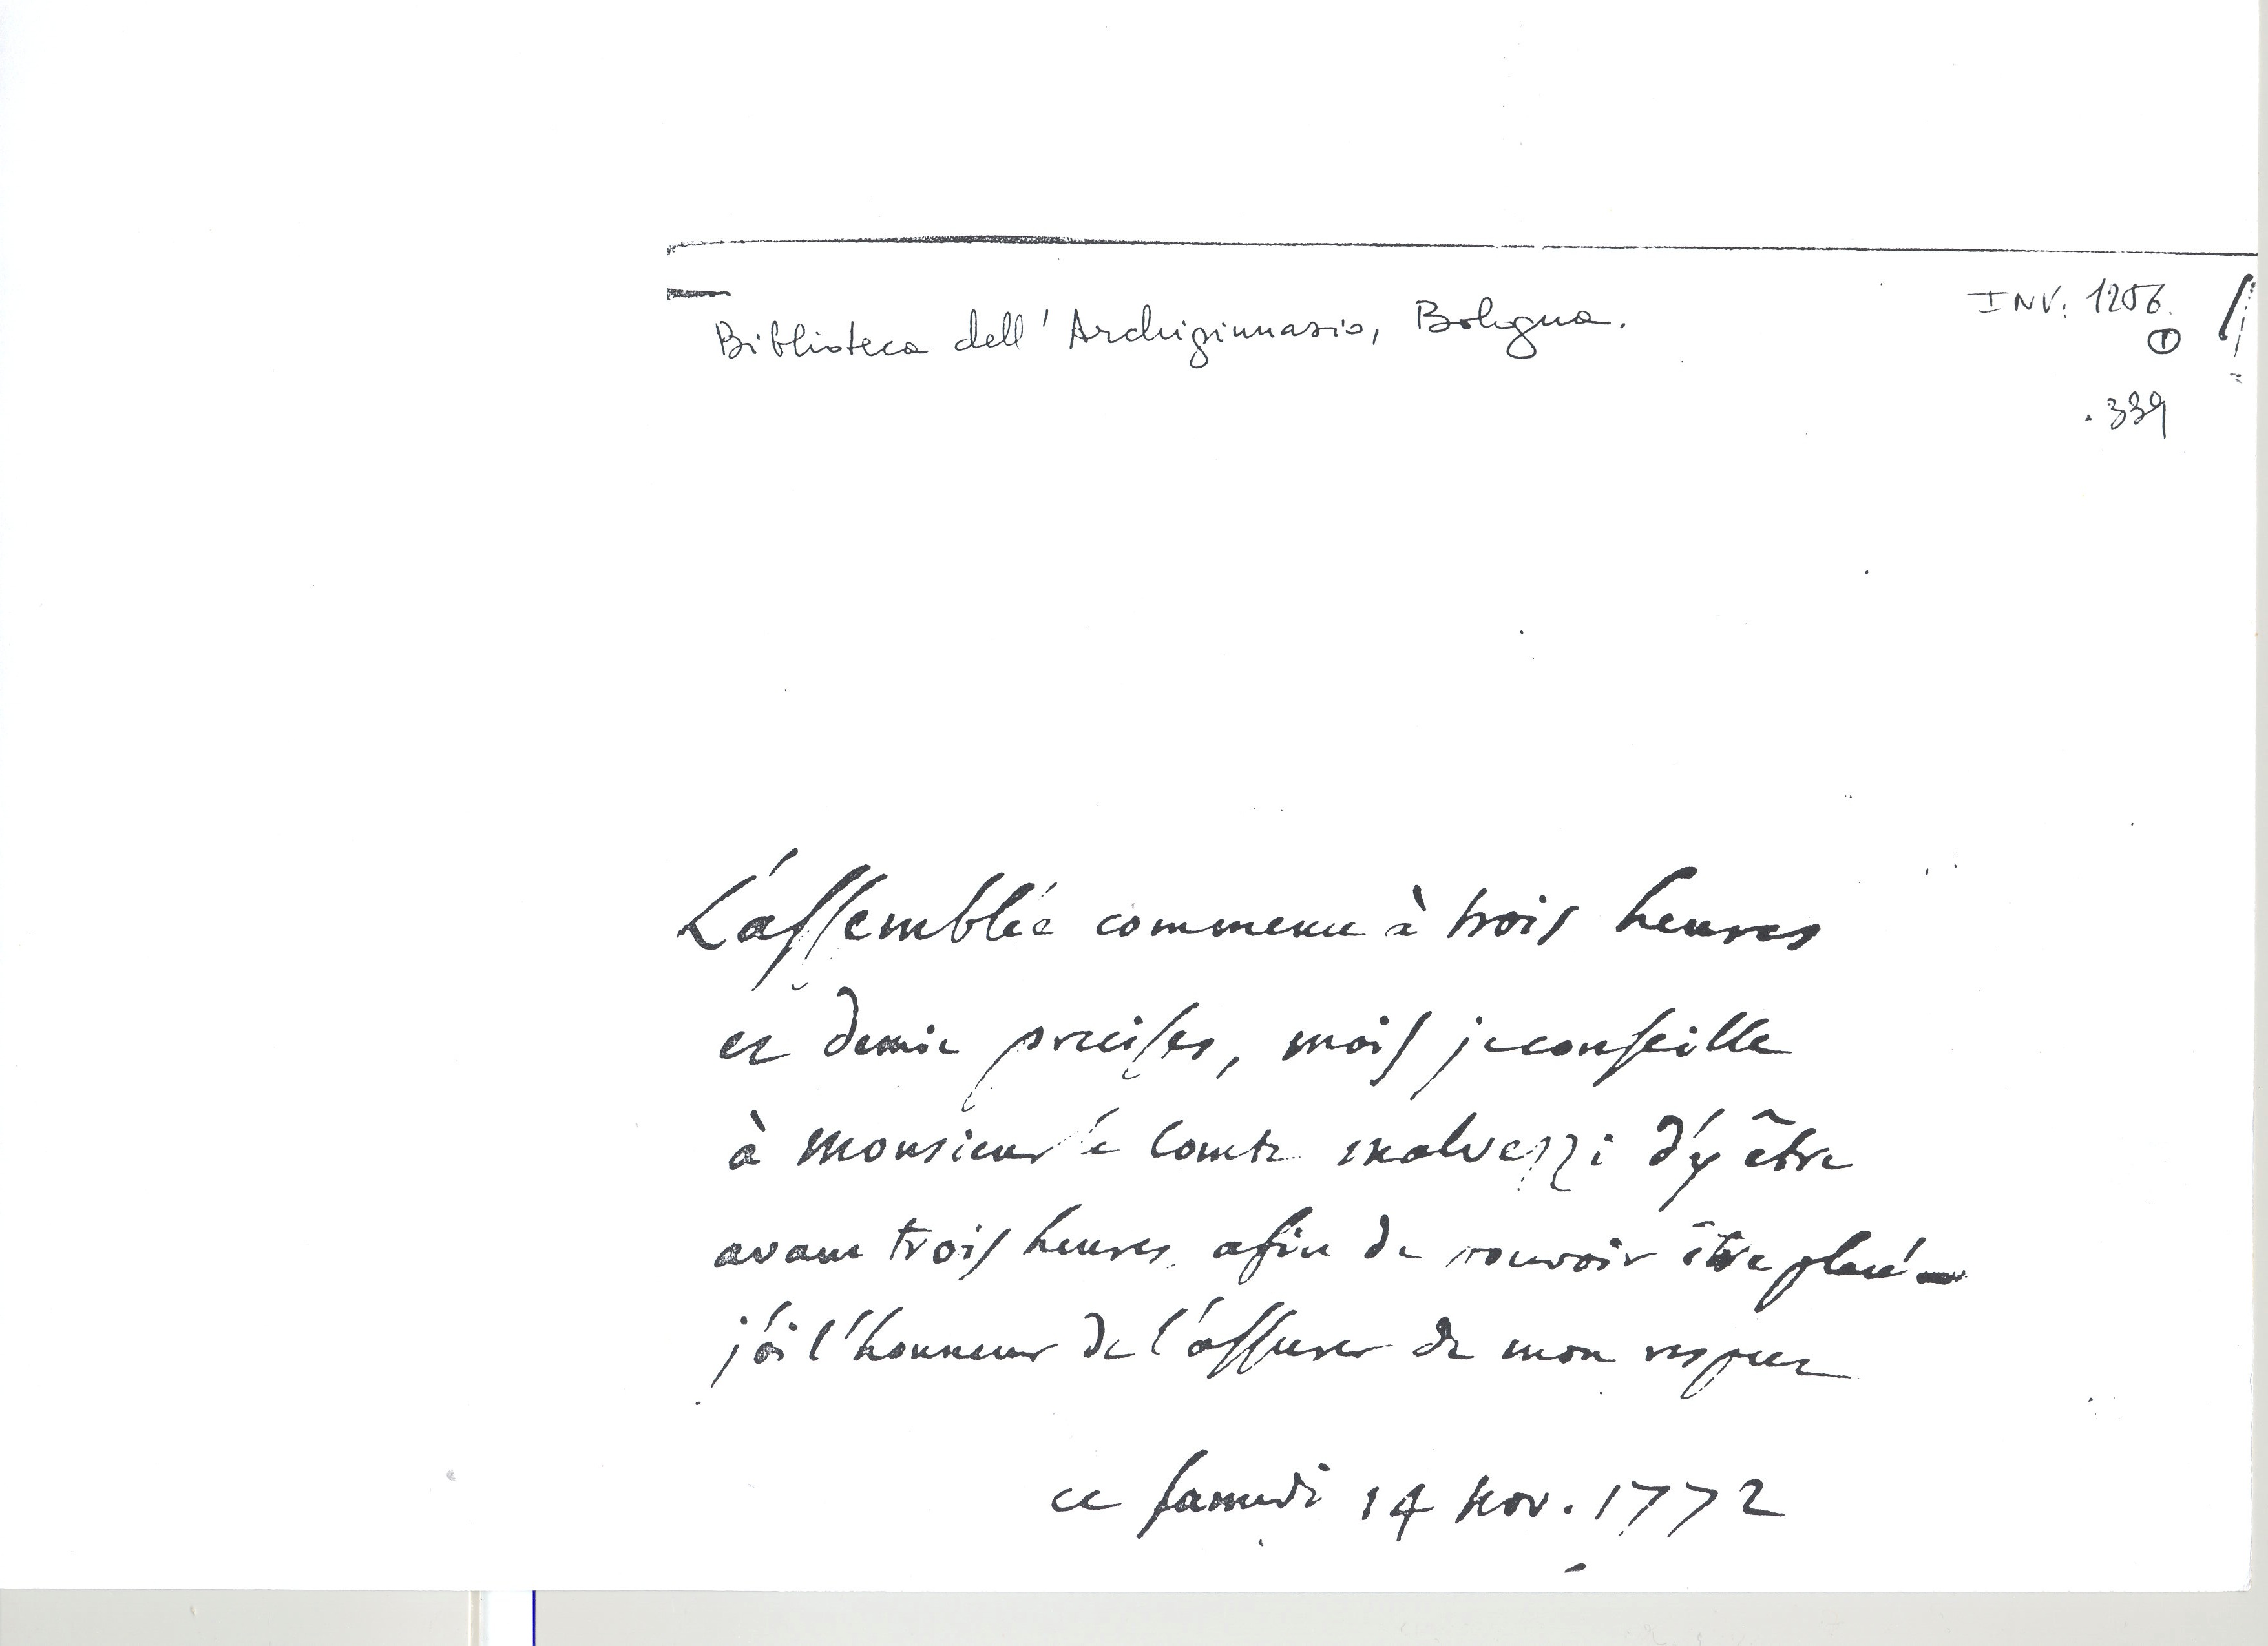 Biblioteca dell'Archiginnasio, Bologna.
INV: 1206.
1
.339
L'assemblée commence à trois heures
et demie precises, mais je conseille
à monsieur le comte malvezzi d'y être
avant trois heures afin de pouvoir être placé
j'ai l'honneur de l'assurer de mon respect
ce samedi 14 nov. 1772